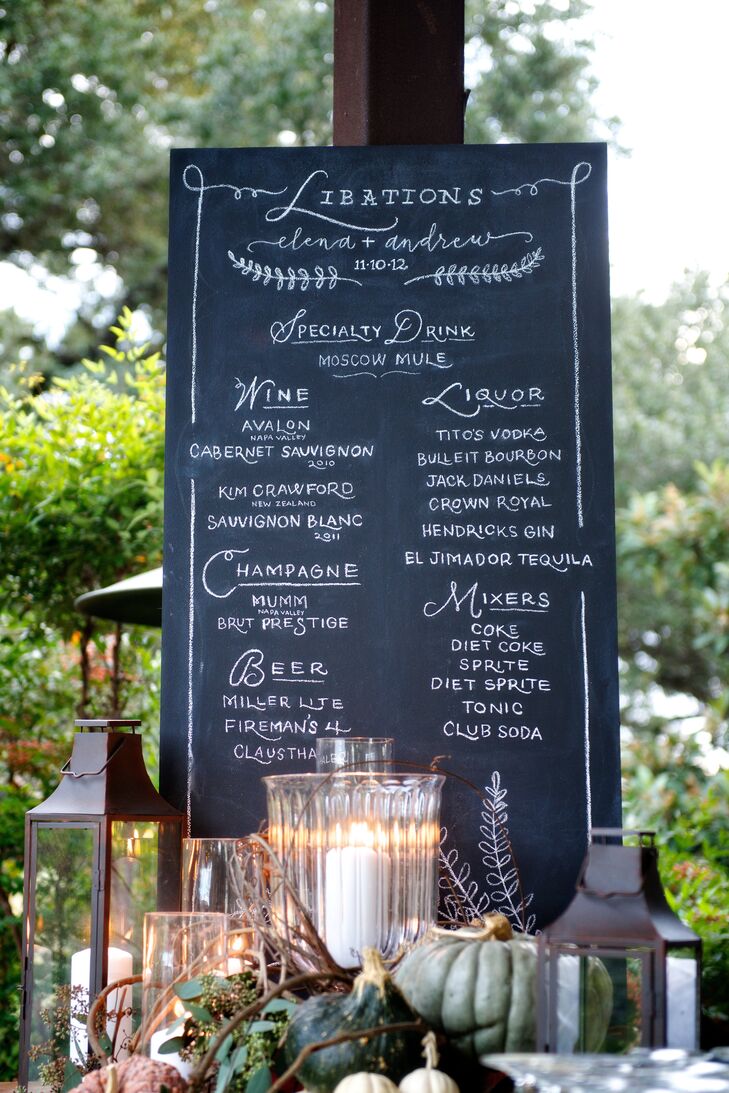 LIBATIONS
elena + andrew
11·10·12
SPECIALTY DRINK
MOSCOW MULE
WINE
AVALON
NAPA VALLEY
CABERNET SAUVIGNON
2010
KIM CRAWFORD
NEW ZEALAND
SAUVIGNON BLANC
2011
CHAMPAGNE
MUMM
NAPA VALLEY
BRUT PRESTIGE
BEER
MILLER LITE
FIREMAN'S 4
LIQUOR
TITO'S VODKA
BULLEIT BOURBON
JACK DANIELS
CROWN ROYAL
HENDRICKS GIN
EL JIMADOR TEQUILA
MIXERS
COKE
DIET COKE
SPRITE
DIET SPRITE
TONIC
CLUB SODA